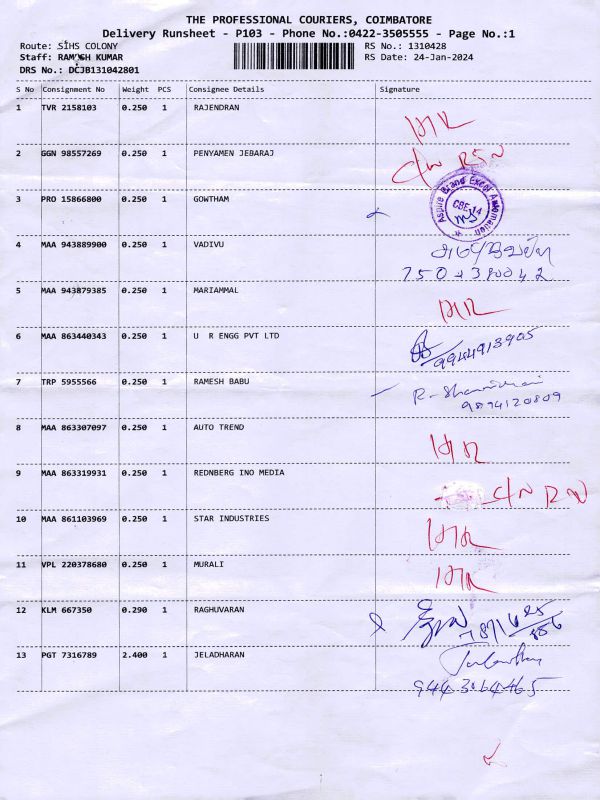 THE PROFESSIONAL COURIERS, COIMBATORE
Delivery Runsheet - P103 - Phone No.:0422-3505555 - Page No.:1
Route: SIHS COLONY RS No.: 1310428
Staff: RAMESH KUMAR RS Date: 24-Jan-2024
DRS No.: DCJB131042801
S No Consignment No Weight PCS Consignee Details Signature
1 TVR 2158103 0.250 1 RAJENDRAN
2 GGN 98557269 0.250 1 PENYAMEN JEBARAJ
3 PRO 15866800 0.250 1 GOWTHAM Aspire Brand Excel Automation
4 MAA 943889900 0.250 1 VADIVU
5 MAA 943879385 0.250 1 MARIAMMAL
6 MAA 863440343 0.250 1 U R ENGG PVT LTD 9944913905
7 TRP 5955566 0.250 1 RAMESH BABU
9894120809
8 MAA 863307097 0.250 1 AUTO TREND
9 MAA 863319931 0.250 1 REDNBERG INO MEDIA
10 MAA 861103969 0.250 1 STAR INDUSTRIES
11 VPL 220378680 0.250 1 MURALI
12 KLM 667350 0.290 1 RAGHUVARAN
13 PGT 7316789 2.400 1 JELADHARAN
9443064465